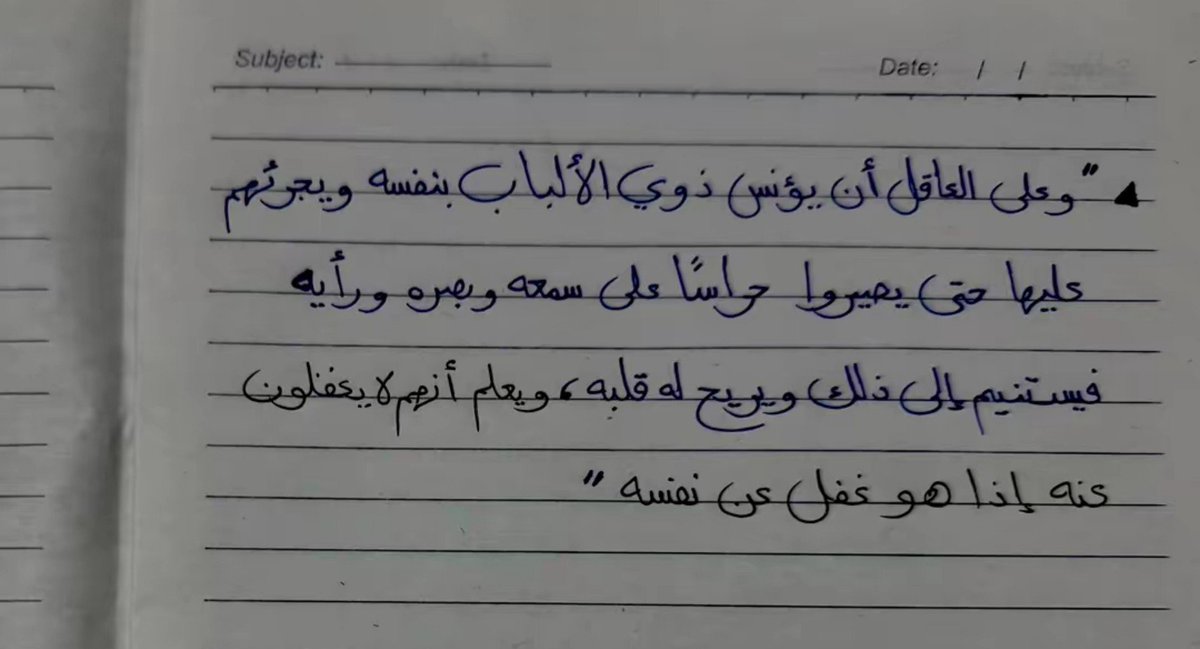 Subject:
Date: / /
"وعلى العاقل أن يؤنس ذوي الألباب بنفسه ويجرئهم
عليها حتى يصيروا حراسًا على سمعه وبصره ورأيه
فيستنيم إلى ذلك ويريح له قلبه، ويعلم أنهم لا يغفلون
عنه إذا هو غفل عن نفسه"